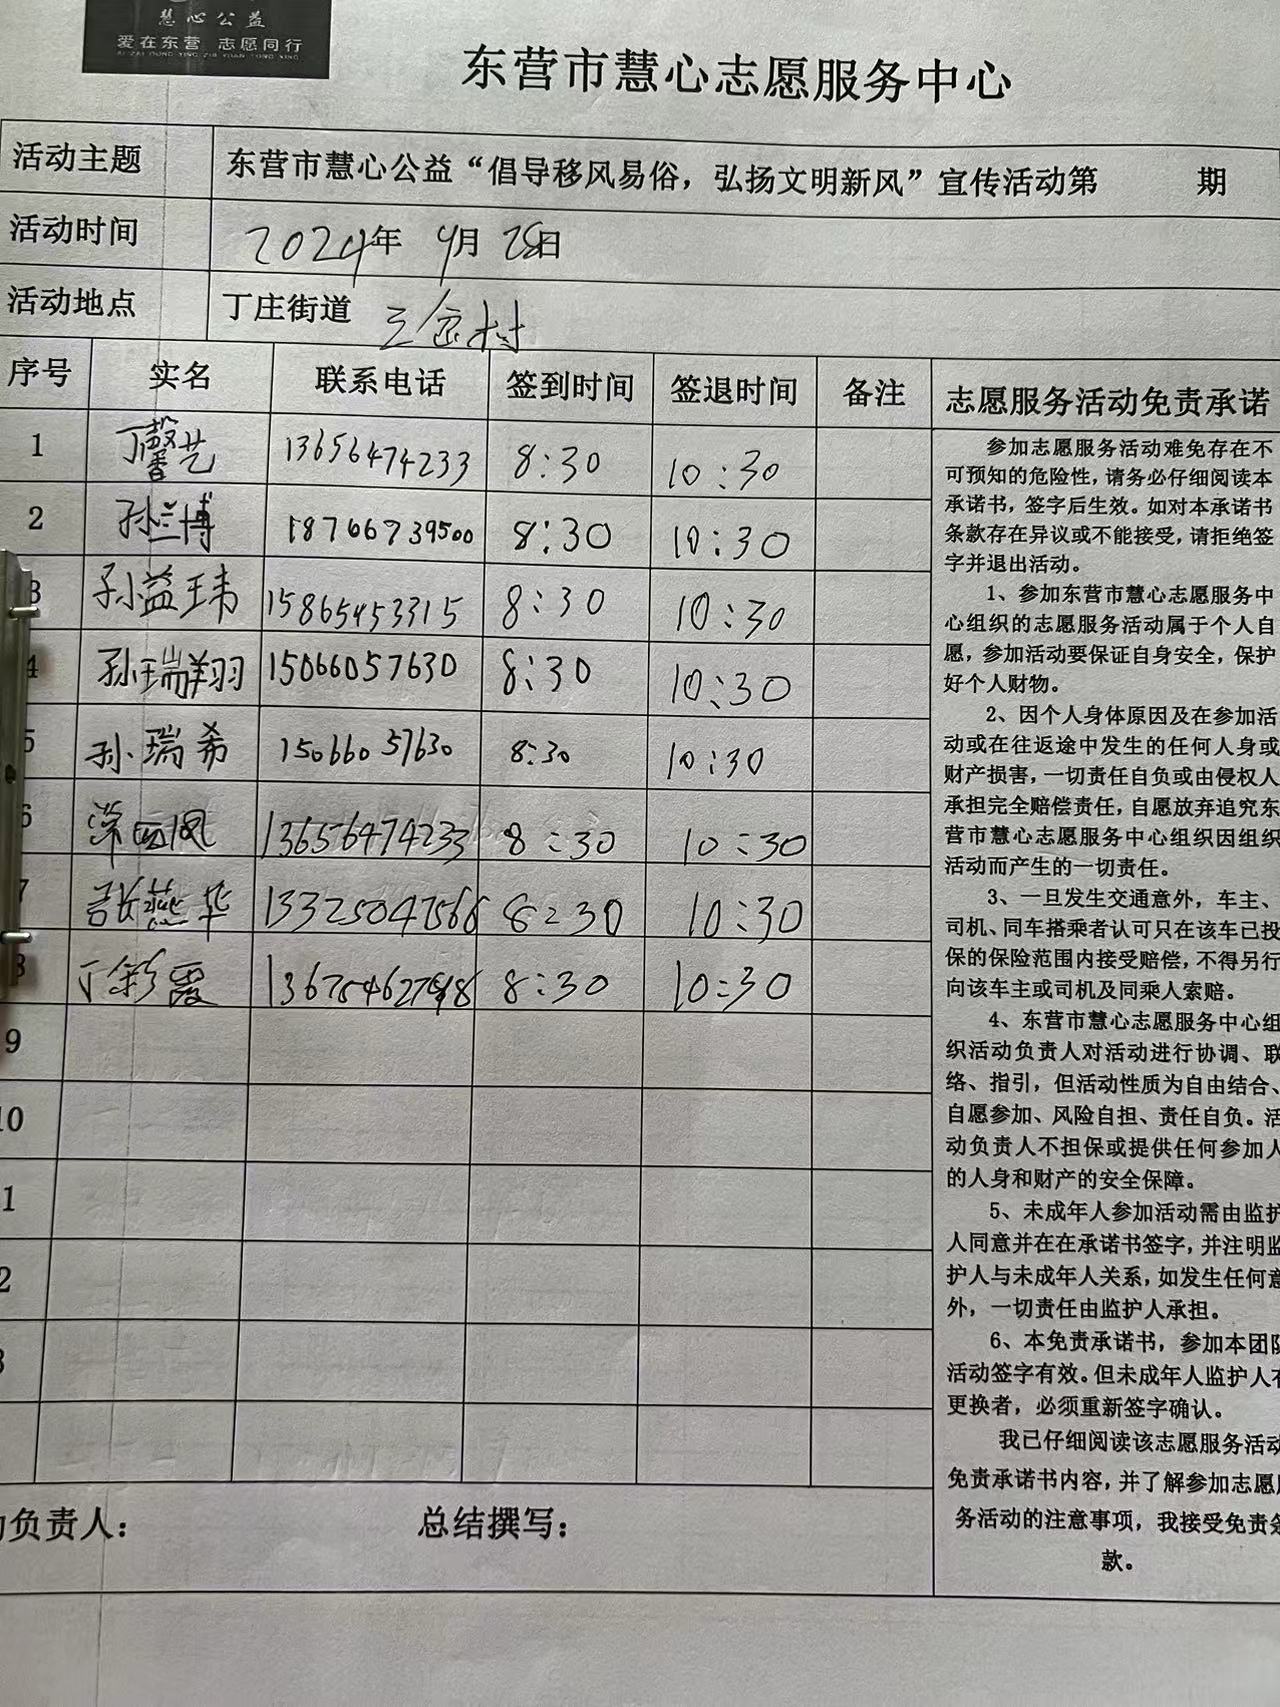 慧心公益
爱在东营 志愿同行
AI ZAI DONG YING ZHI YUAN TONG XING
东营市慧心志愿服务中心
活动主题 东营市慧心公益“倡导移风易俗，弘扬文明新风”宣传活动第 期
活动时间 2024年 9月 28日
活动地点 丁庄街道 村
序号 实名 联系电话 签到时间 签退时间 备注
1 丁馨艺 13656474233 8:30 10:30
2 孙兰博 18766739500 8:30 10:30
3 孙益玮 15865453315 8:30 10:30
4 孙瑞翔 15066057630 8:30 10:30
5 孙瑞希 15066057630 8:30 10:30
6 13656474233 8:30 10:30
7 张燕华 13325047566 8:30 10:30
8 丁彩霞 8:30 10:30
9
10
1
2
3
动负责人： 总结撰写：
志愿服务活动免责承诺
参加志愿服务活动难免存在不
可预知的危险性，请务必仔细阅读本
承诺书，签字后生效。如对本承诺书
条款存在异议或不能接受，请拒绝签
字并退出活动。
1、参加东营市慧心志愿服务中
心组织的志愿服务活动属于个人自
愿，参加活动要保证自身安全，保护
好个人财物。
2、因个人身体原因及在参加活
动或在往返途中发生的任何人身或
财产损害，一切责任自负或由侵权人
承担完全赔偿责任，自愿放弃追究东
营市慧心志愿服务中心组织因组织
活动而产生的一切责任。
3、一旦发生交通意外，车主、
司机、同车搭乘者认可只在该车已投
保的保险范围内接受赔偿，不得另行
向该车主或司机及同乘人索赔。
4、东营市慧心志愿服务中心组
织活动负责人对活动进行协调、联
络、指引，但活动性质为自由结合、
自愿参加、风险自担、责任自负。活
动负责人不担保或提供任何参加人
的人身和财产的安全保障。
5、未成年人参加活动需由监护
人同意并在在承诺书签字，并注明监
护人与未成年人关系，如发生任何意
外，一切责任由监护人承担。
6、本免责承诺书，参加本团队
活动签字有效。但未成年人监护人有
更换者，必须重新签字确认。
我已仔细阅读该志愿服务活动
免责承诺书内容，并了解参加志愿服
务活动的注意事项，我接受免责条
款。